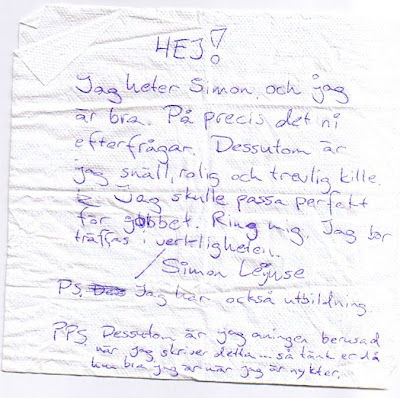 HEJ!
Jag heter Simon, och jag
är bra. På precis det ni
efterfrågar. Dessutom är
jag snäll, rolig och trevlig kille.
Jag skulle passa perfekt
för jobbet. Ring mig. Jag bör
träffas i verkligheten.
/Simon Leijuse
PS. Jag har också utbildning.
PPS. Dessutom är jag aningen berusad
när jag skriver detta... så tänk er då
hur bra jag är när jag är nykter.